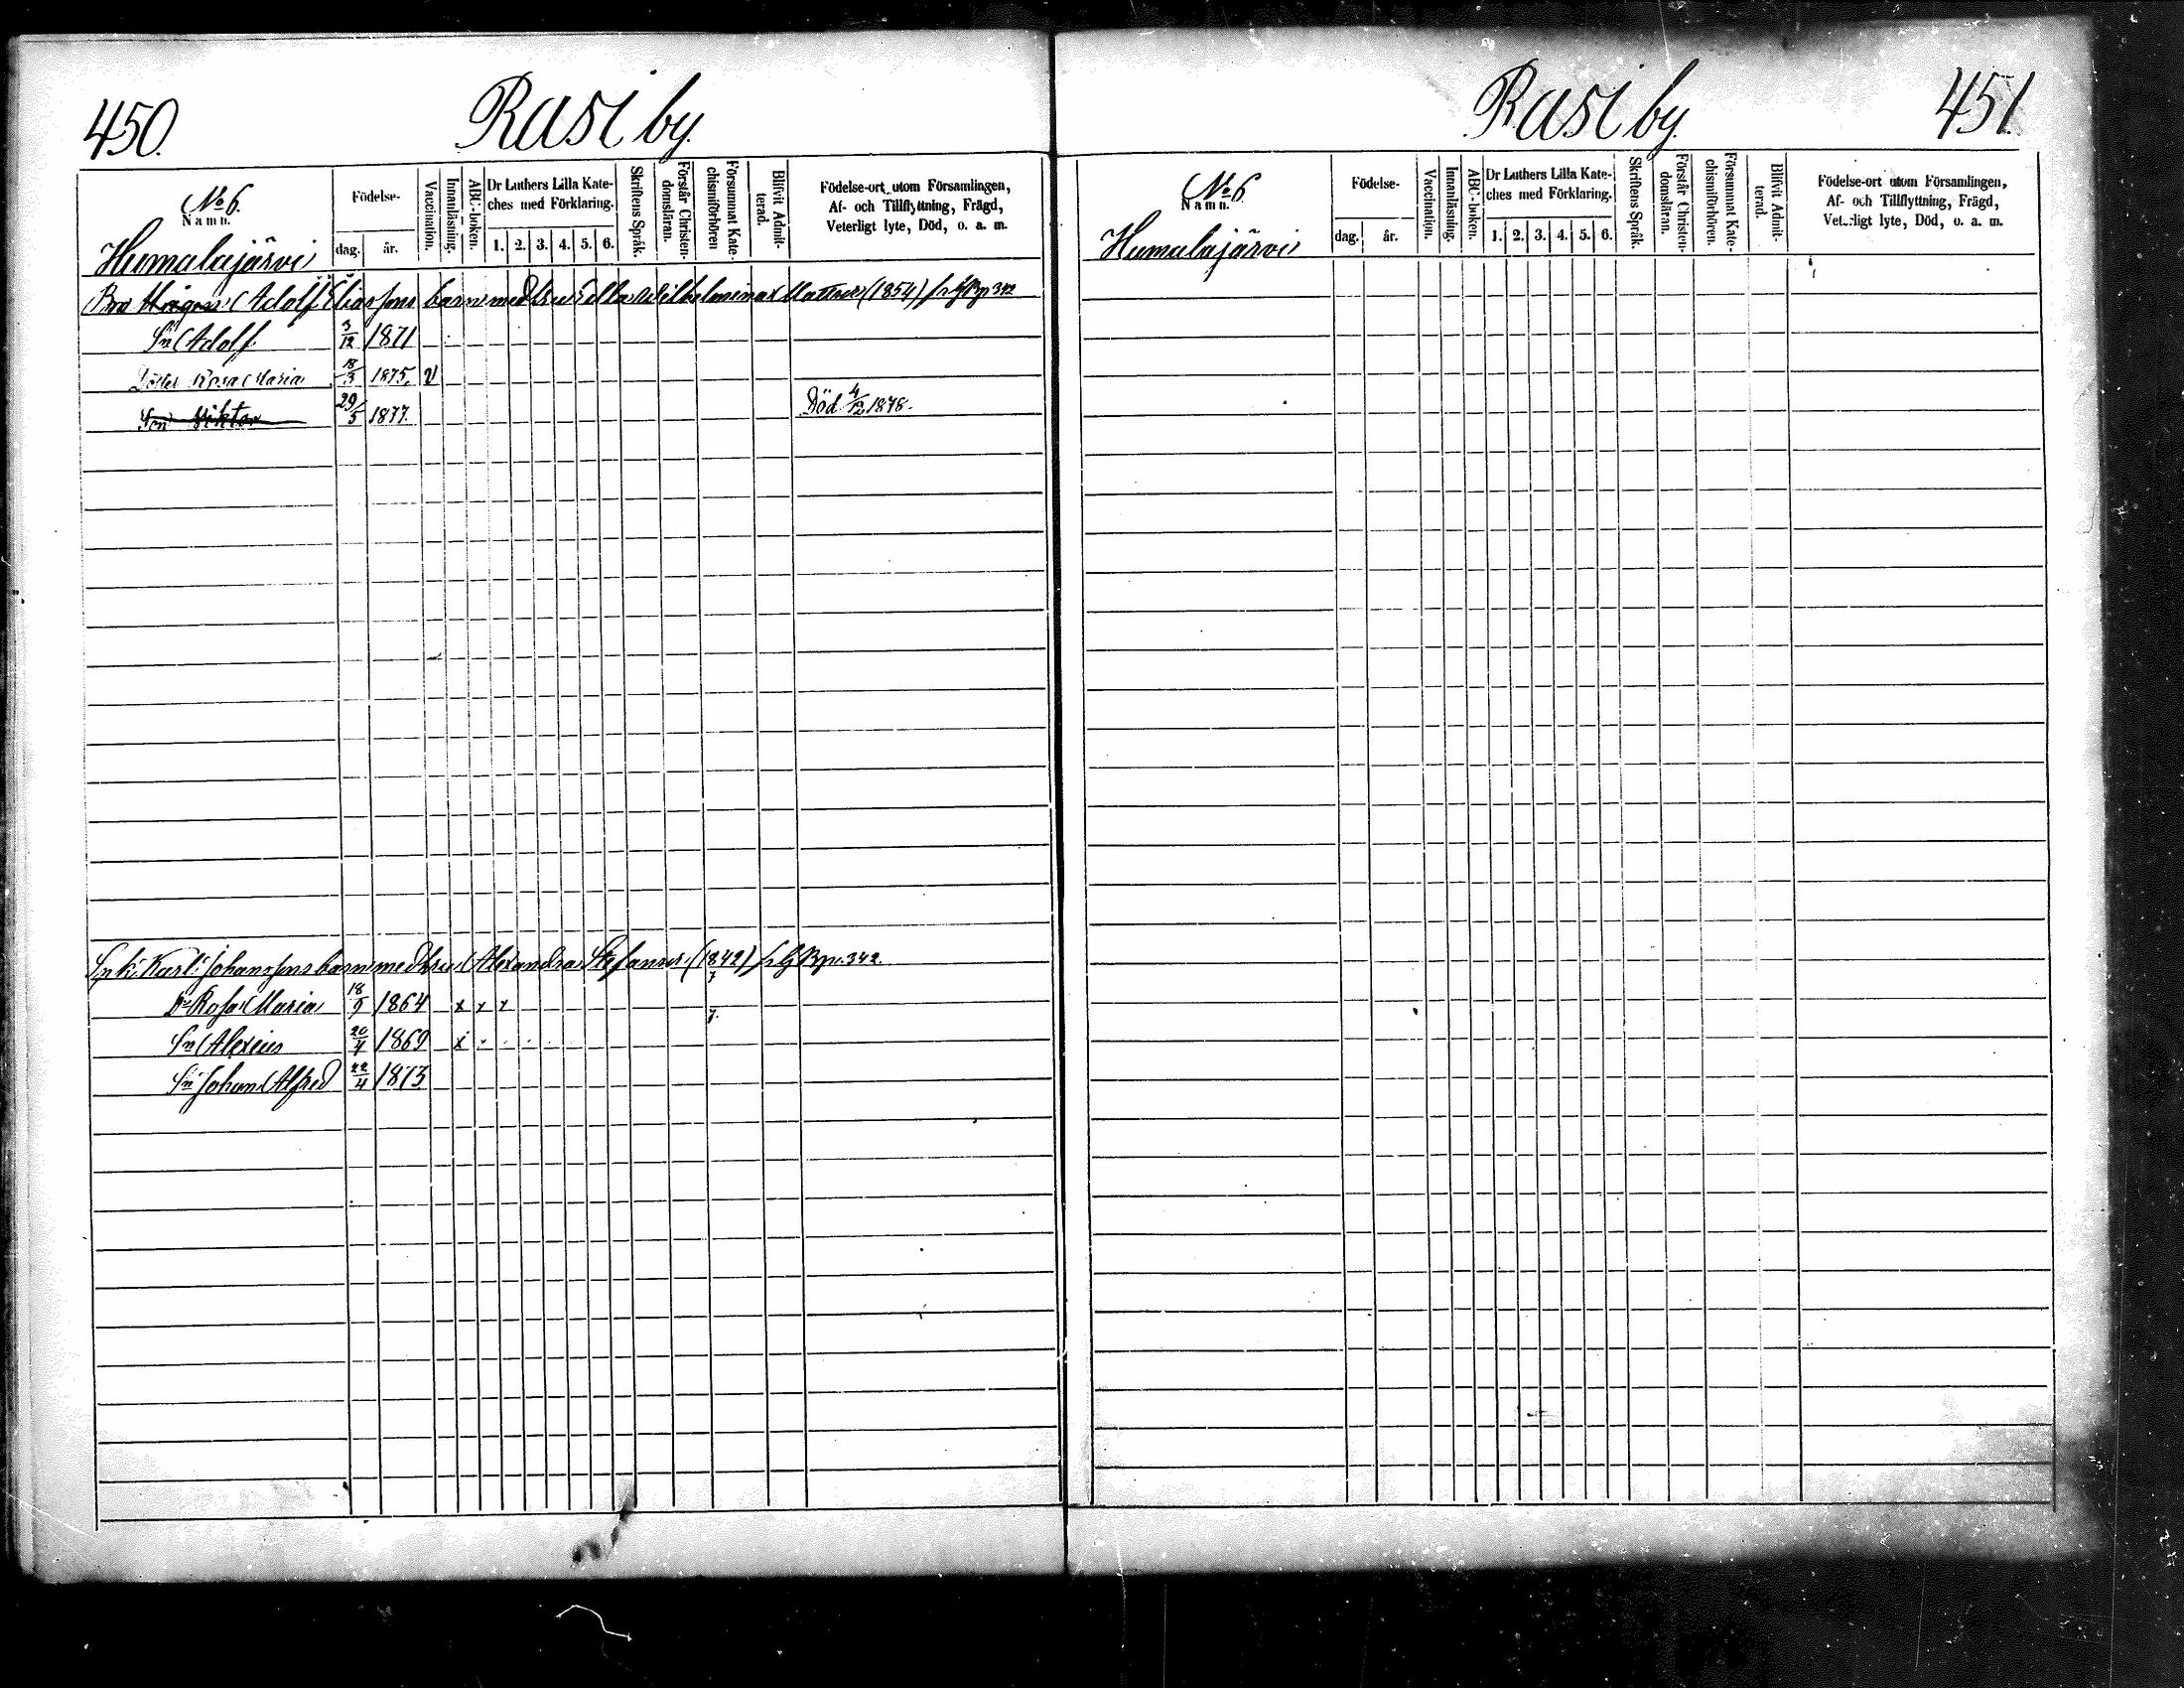 450.
Rasi by.
No 6.
Namn.
Födelse-
dag.
år.
Vaccination.
Innanläsning.
ABC-boken.
Dr Luthers Lilla Kate-
ches med Förklaring.
1. 2. 3. 4. 5. 6.
Skriftens Språk.
Förstår Christen-
domsläran.
Försummat Kate-
chismiförhören
Blifvit Admit-
terad.
Födelse-ort utom Församlingen,
Af- och Tillflyttning, Frägd,
Veterligt lyte, Död, o. a. m.
Humalajärvi
Adolf Eliassons barn med hu Ulla Wilhelmina Mattsdr (1854) p. 342
Sn Adolf 3/12 1871
Dotter Rosa Maria 18/3 1875. V
Son Viktor 29/5 1877. Död 4/12 1878.
Karl Johanssons barn med hu Alexandra Stefansdr (1842) p. 342.
Dr Rosa Maria 18/9 1864 x x x
Sn Alexius 20/7 1869 x
Sn Johan Alfred 22/4 1873
Rasi by
451.
No 6.
Namn.
Födelse-
dag.
år.
Vaccination.
Innanläsning.
ABC-boken.
Dr Luthers Lilla Kate-
ches med Förklaring.
1. 2. 3. 4. 5. 6.
Skriftens Språk.
Förstår Christen-
domsläran.
Försummat Kate-
chismiförhören.
Blifvit Admit-
terad.
Födelse-ort utom Församlingen,
Af- och Tillflyttning, Frägd,
Veterligt lyte, Död, o. a. m.
Humalajärvi